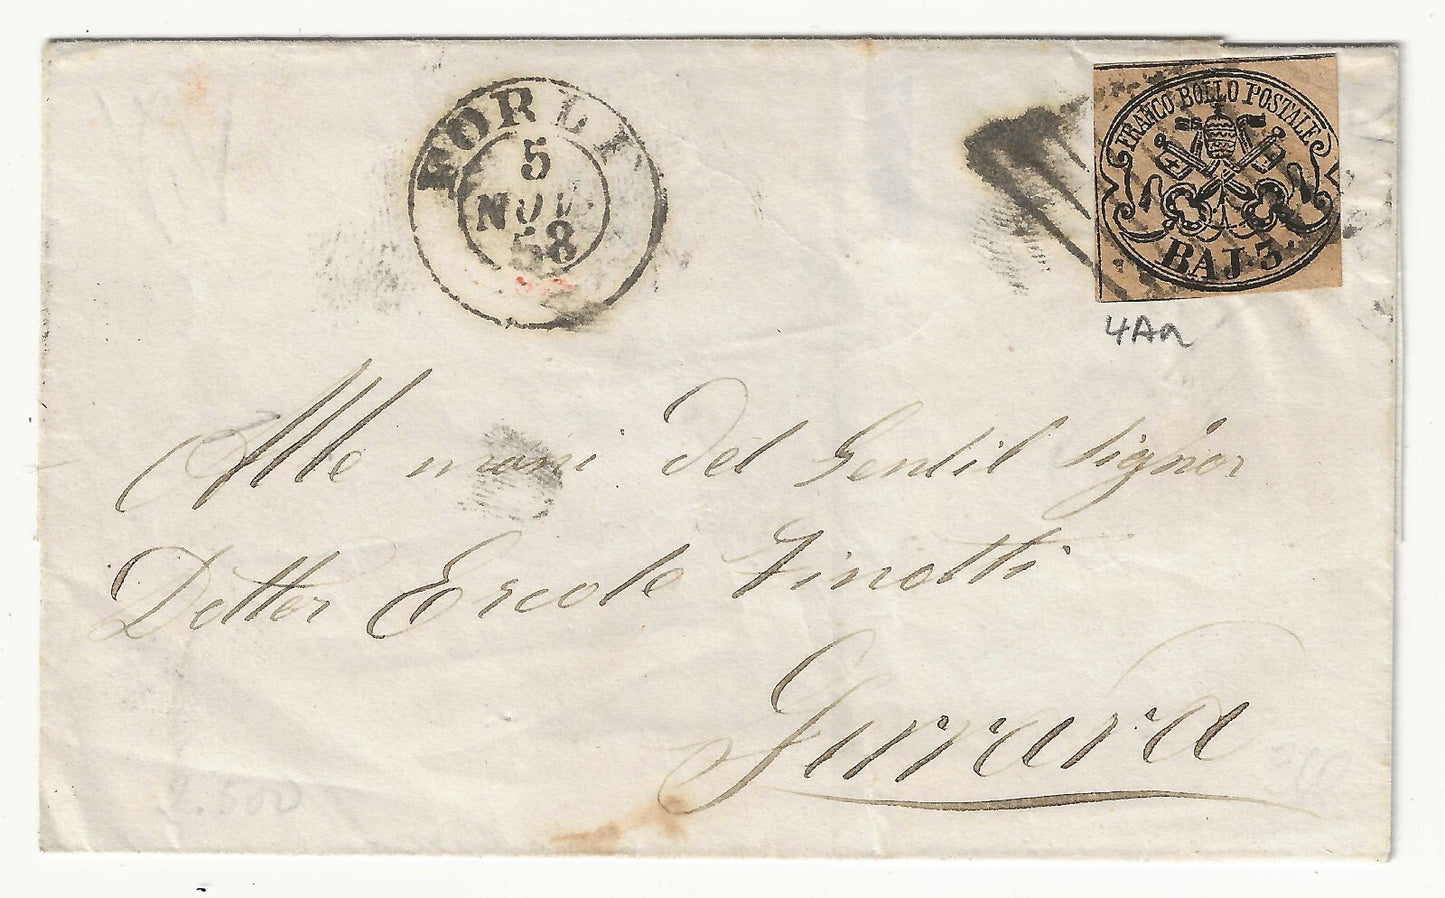 FORLI
5
NOV
58
FRANCO BOLLO POSTALE
BAJ. 3.
4Aa
Alle mani del Gentil Signor
Dottor Ercole Finotti
Ferrara
2.500